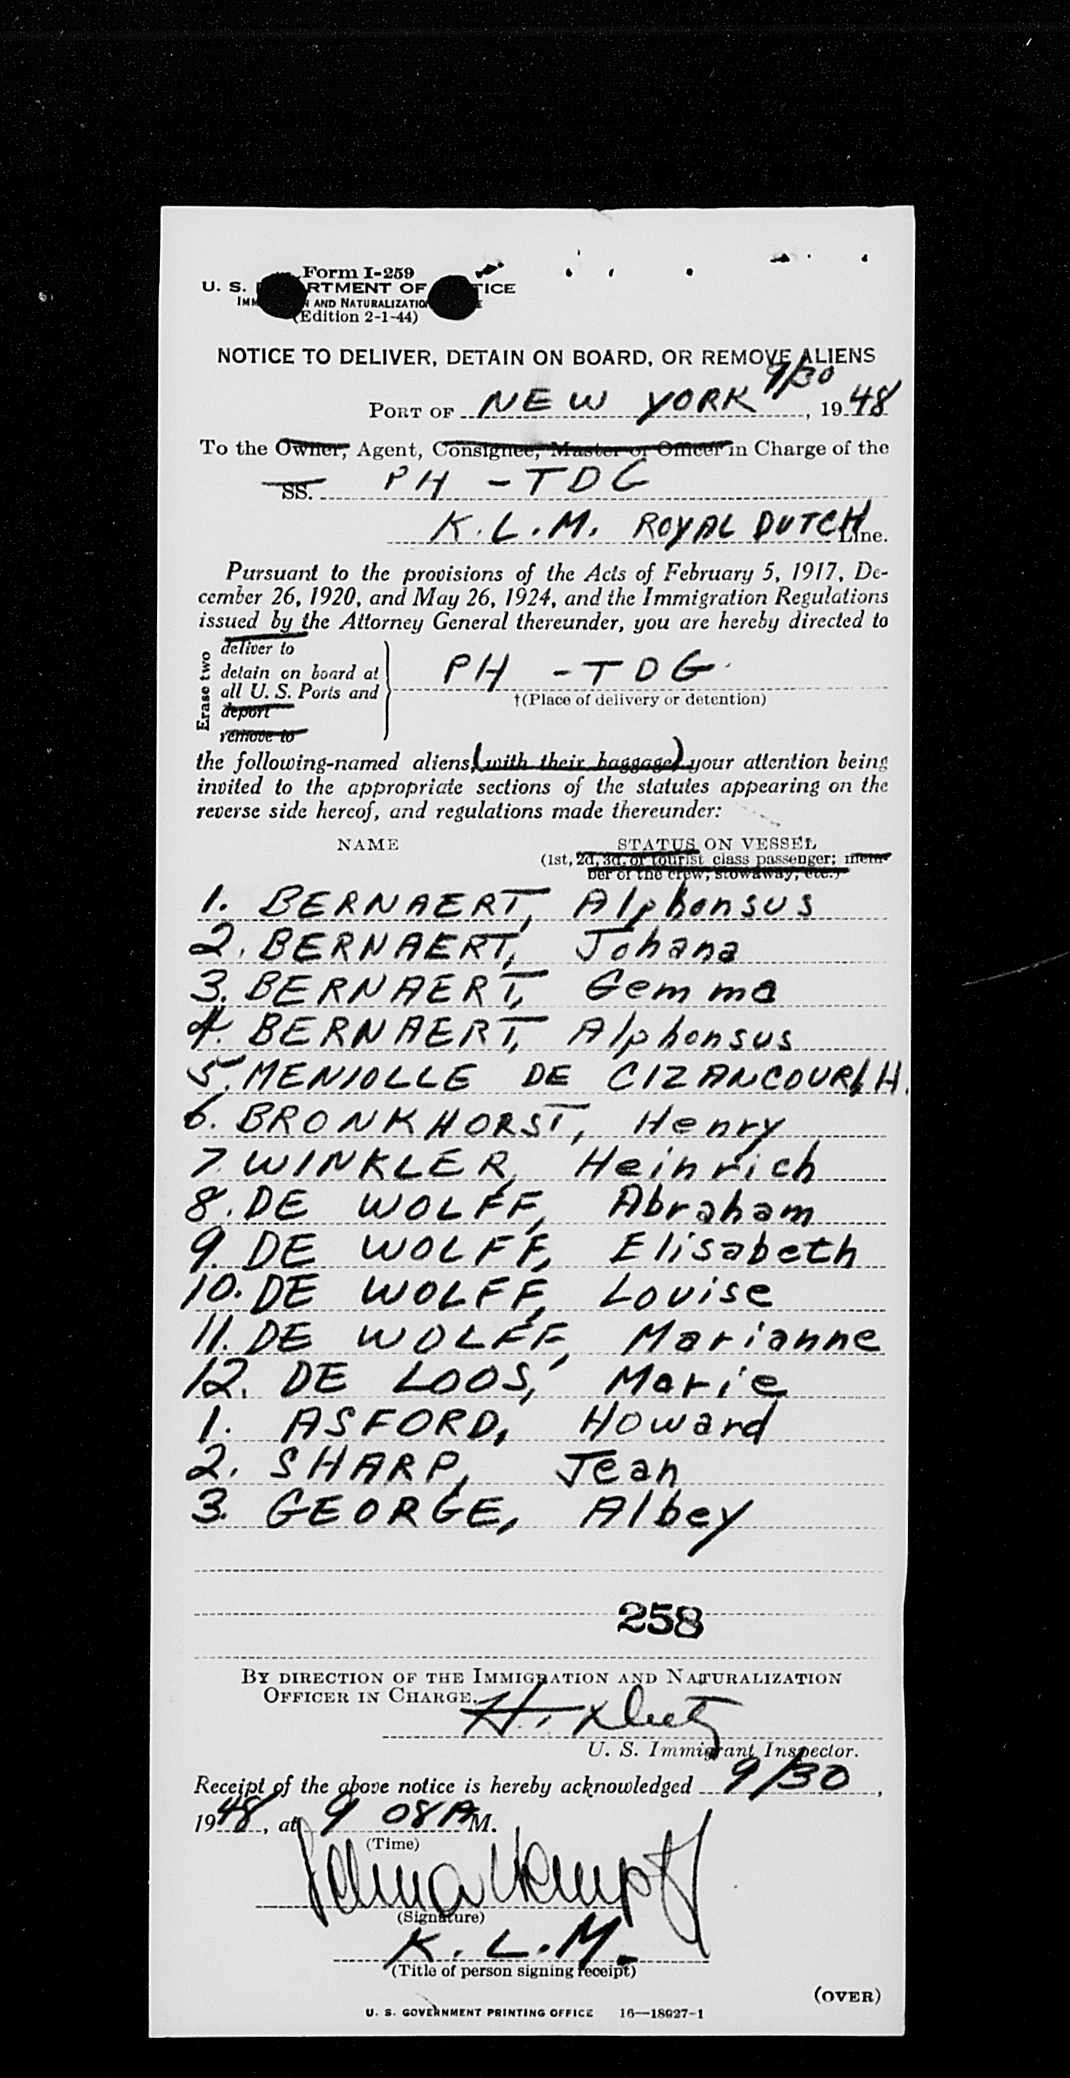 Form I-259
U. S. RTMENT OF TICE
AND NATURALIZATIO
(Edition 2-1-44)
NOTICE TO DELIVER, DETAIN ON BOARD, OR REMOVE ALIENS
9/30
PORT OF NEW YORK, 1948
To the Owner, Agent, Consignee, Master or Officer in Charge of the
SS. PH - TDG
K.L.M. ROYAL DUTCH Line.
Pursuant to the provisions of the Acts of February 5, 1917, De-
cember 26, 1920, and May 26, 1924, and the Immigration Regulations
issued by the Attorney General thereunder, you are hereby directed to
Erase two
deliver to
detain on board at
all U. S. Ports and
deport
remove to
PH - TDG
†(Place of delivery or detention)
the following-named aliens, (with their baggage) your attention being
invited to the appropriate sections of the statutes appearing on the
reverse side hereof, and regulations made thereunder:
NAME STATUS ON VESSEL
(1st, 2d, 3d, or tourist class passenger; mem-
ber of the crew, stowaway, etc.)
1. BERNAERT, Alphonsus
2. BERNAERT, Johana
3. BERNAERT, Gemma
4. BERNAERT, Alphonsus
5. MENIOLLE DE CIZANCOURT, H.
6. BRONKHORST, Henry
7. WINKLER, Heinrich
8. DE WOLFF, Abraham
9. DE WOLFF, Elisabeth
10. DE WOLFF, Louise
11. DE WOLFF, Marianne
12. DE LOOS, Marie
1. ASFORD, Howard
2. SHARP, Jean
3. GEORGE, Albey
258
BY DIRECTION OF THE IMMIGRATION AND NATURALIZATION
OFFICER IN CHARGE.
U. S. Immigrant Inspector.
Receipt of the above notice is hereby acknowledged 9/30,
1948, at 9 08 A M.
(Time)
(Signature)
K.L.M.
(Title of person signing receipt)
(OVER)
U. S. GOVERNMENT PRINTING OFFICE 16—18027-1